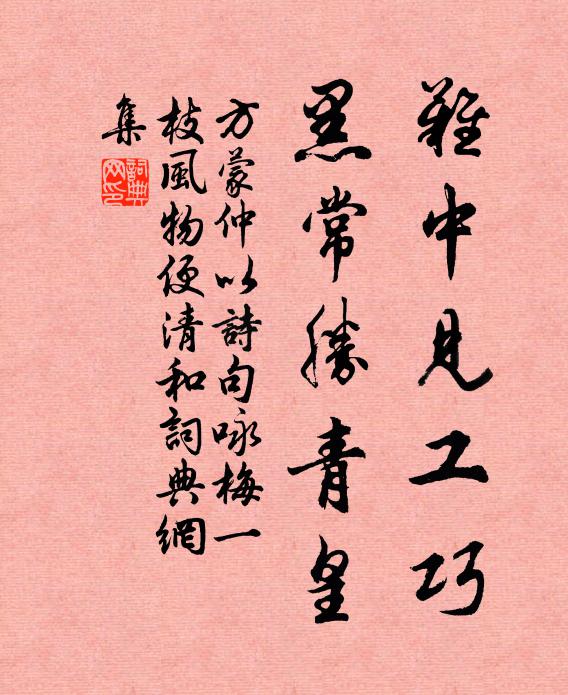 難中見工巧
黑常勝青皇
方蒙仲以詩句咏梅一
枝風物便清和詞典網
集
詞典
网印